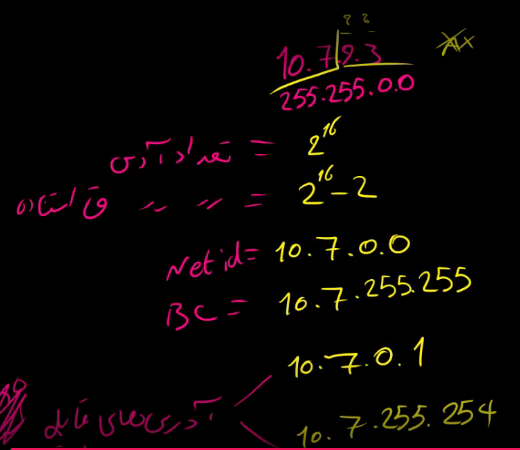 8 8
10.7.9.3
255.255.0.0
تعداد آدرس = 2^16
قابل استفاده 〃 〃 = 2^16 - 2
Net id = 10.7.0.0
BC = 10.7.255.255
10.7.0.1
آدرس های قابل
10.7.255.254